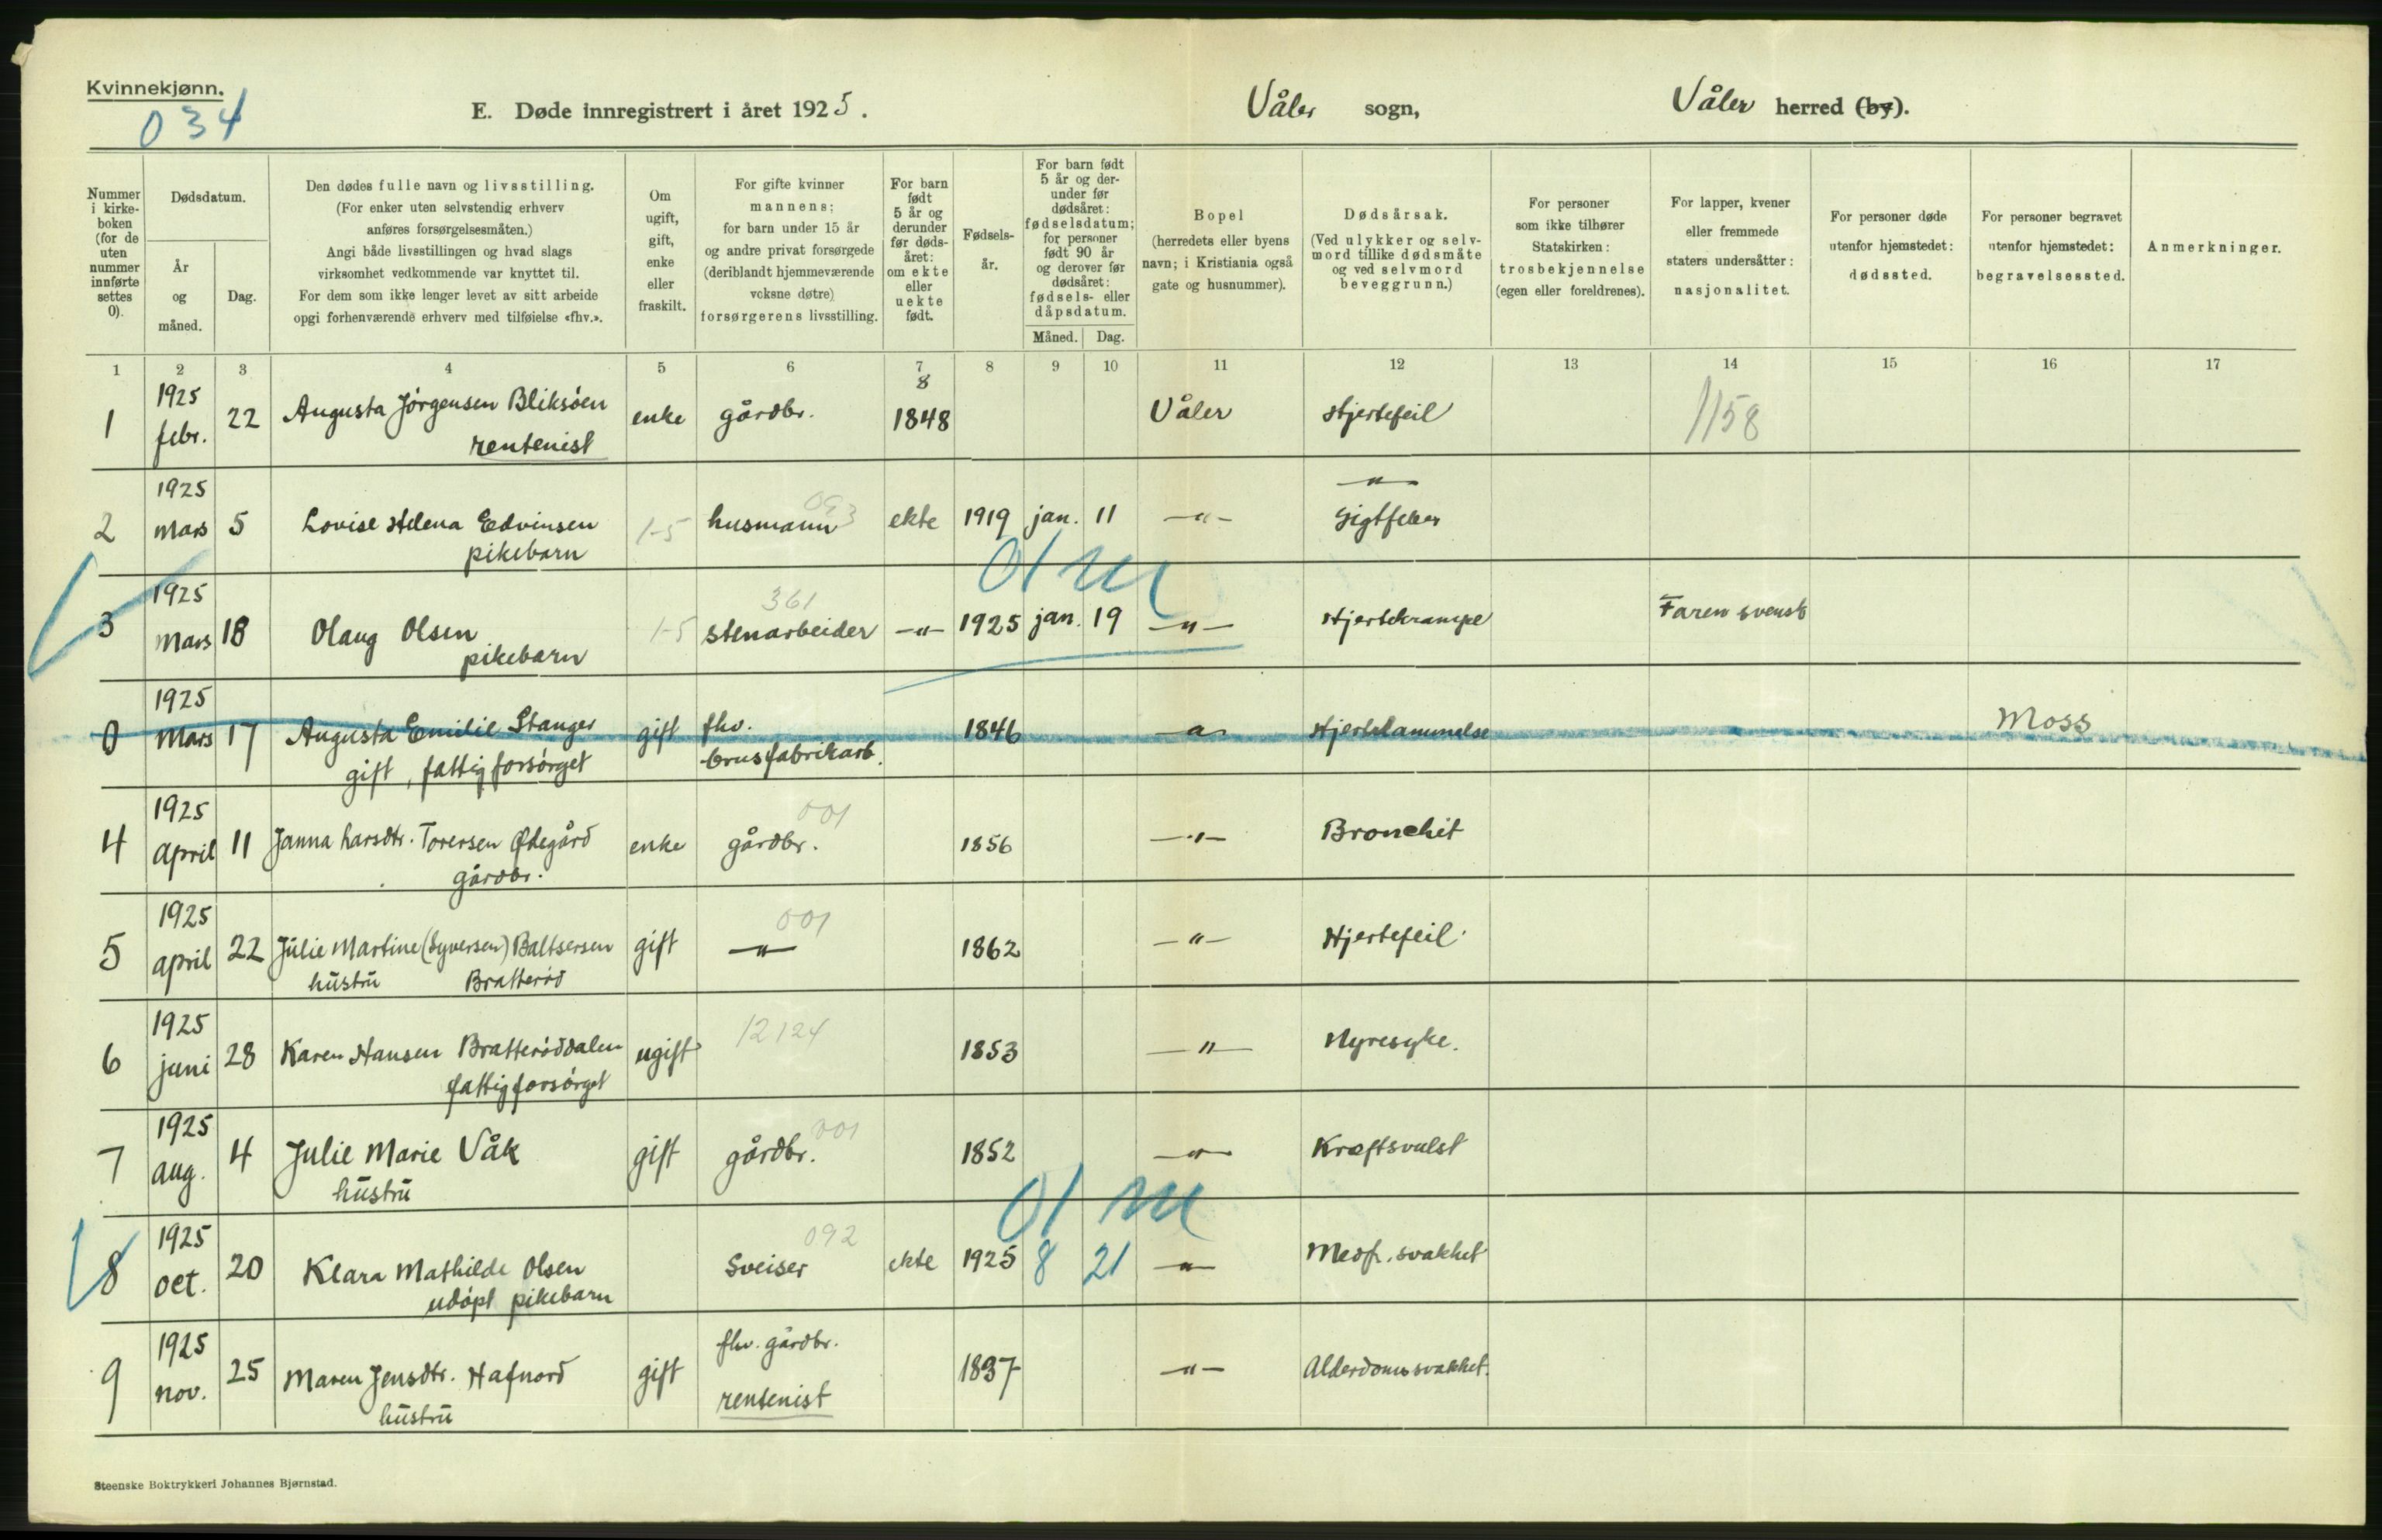 Kvinnekjønn.
034
E. Døde innregistrert i året 1925. Våler sogn, Våler herred (by).
Nummer i kirkeboken (for de uten nummer innførte settes 0).
Dødsdatum.
År og måned.
Dag.
Den dødes fulle navn og livsstilling.
(For enker uten selvstendig erhverv
anføres forsørgelsesmåten.)
Angi både livsstillingen og hvad slags
virksomhet vedkommende var knyttet til.
For dem som ikke lenger levet av sitt arbeide
opgi forhenværende erhverv med tilføielse «fhv.».
Om ugift, gift, enke eller fraskilt.
For gifte kvinner
mannens;
for barn under 15 år
og andre privat forsørgede
(deriblandt hjemmeværende
voksne døtre)
forsørgerens livsstilling.
For barn født 5 år og derunder før dødsåret: om ekte eller uekte født.
Fødselsår.
For barn født 5 år og derunder før dødsåret: fødselsdatum; for personer født 90 år og derover før dødsåret: fødsels- eller dåpsdatum.
Måned. Dag.
Bopel
(herredets eller byens
navn; i Kristiania også
gate og husnummer).
Dødsårsak.
(Ved ulykker og selvmord tillike dødsmåte
og ved selvmord
beveggrunn.)
For personer
som ikke tilhører
Statskirken:
trosbekjennelse
(egen eller foreldrenes).
For lapper, kvener
eller fremmede
staters undersåtter:
nasjonalitet.
For personer døde
utenfor hjemstedet:
dødssted.
For personer begravet
utenfor hjemstedet:
begravelsessted.
Anmerkninger.
1 2 3 4 5 6 7 8 9 10 11 12 13 14 15 16 17
8
1 1925 febr. 22 Augusta Jörgensen Bliksöen enke gårdbr. 1848 Våler Hjertefeil 1158
rentenist
2 1925 Mars 5 Lovise Helena Edvinsen 1-5 husmann 093 ekte 1919 jan. 11 -"- -"- Gigtfeber
pikebarn
01 m
3 1925 Mars 18 Olaug Olsen 1-5 361 stenarbeider -"- 1925 jan. 19 -"- Hjertekrampe Faren svensk
pikebarn
0 1925 Mars 17 Augusta Emilie Stanger gift fhv. brusfabrikarb. 1846 -"- Hjertelammelse Moss
gift, fattigforsörget
4 1925 April 11 Janna Larsdtr. Torersen Ødegård enke gårdbr. 001 1856 -"- Bronchit
gårdbr.
5 1925 april 22 Julie Martine (Syversen) Baltsersen gift -"- 001 1862 -"- Hjertefeil.
hustru Bratteröd
6 1925 juni 28 Karen Hansen Bratteröddalen ugift 12124 1853 -"- Nyresyke.
fattigforsörget
7 1925 aug. 4 Julie Marie Våk gift gårdbr. 001 1852 -"- Kræftsvulst
hustru
01 m
8 1925 oct. 20 Klara Mathilde Olsen Sveiser 092 ekte 1925 8 21 -"- Medf. svakhet
udöpt pikebarn
9 1925 nov. 25 Maren Jensdtr. Hafnord gift fhv. gårdbr. rentenist 1837 -"- Alderdomssvakhet.
hustru
Steenske Boktrykkeri Johannes Bjørnstad.